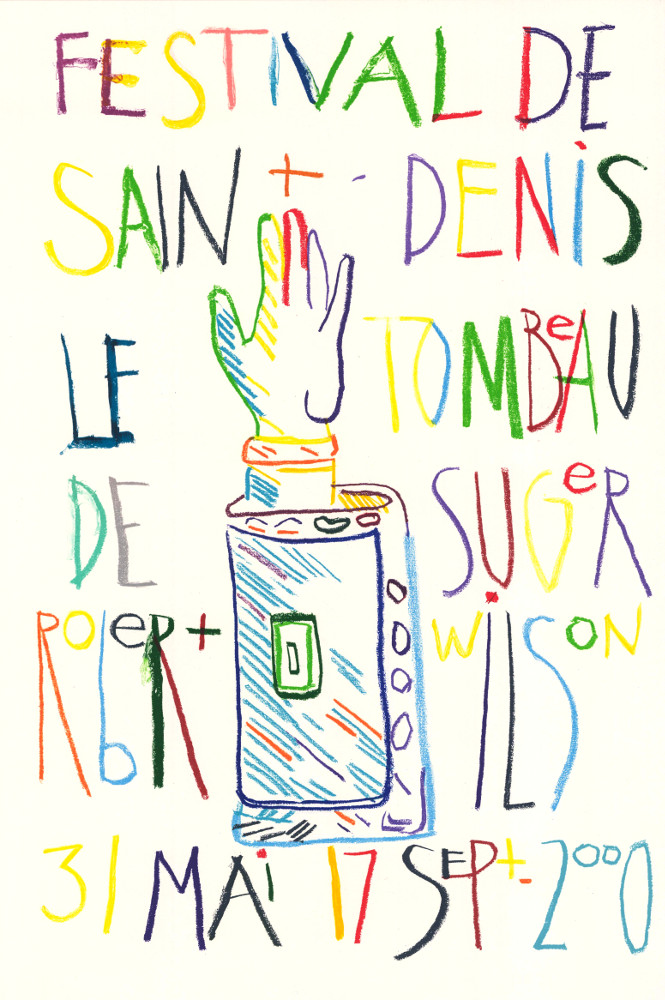 FESTIVAL DE
SAINt-DENiS
LE TOMBeAU
DE SUGeR
RObeRt WiLSON
31 MAi 17 SEPt. 2000